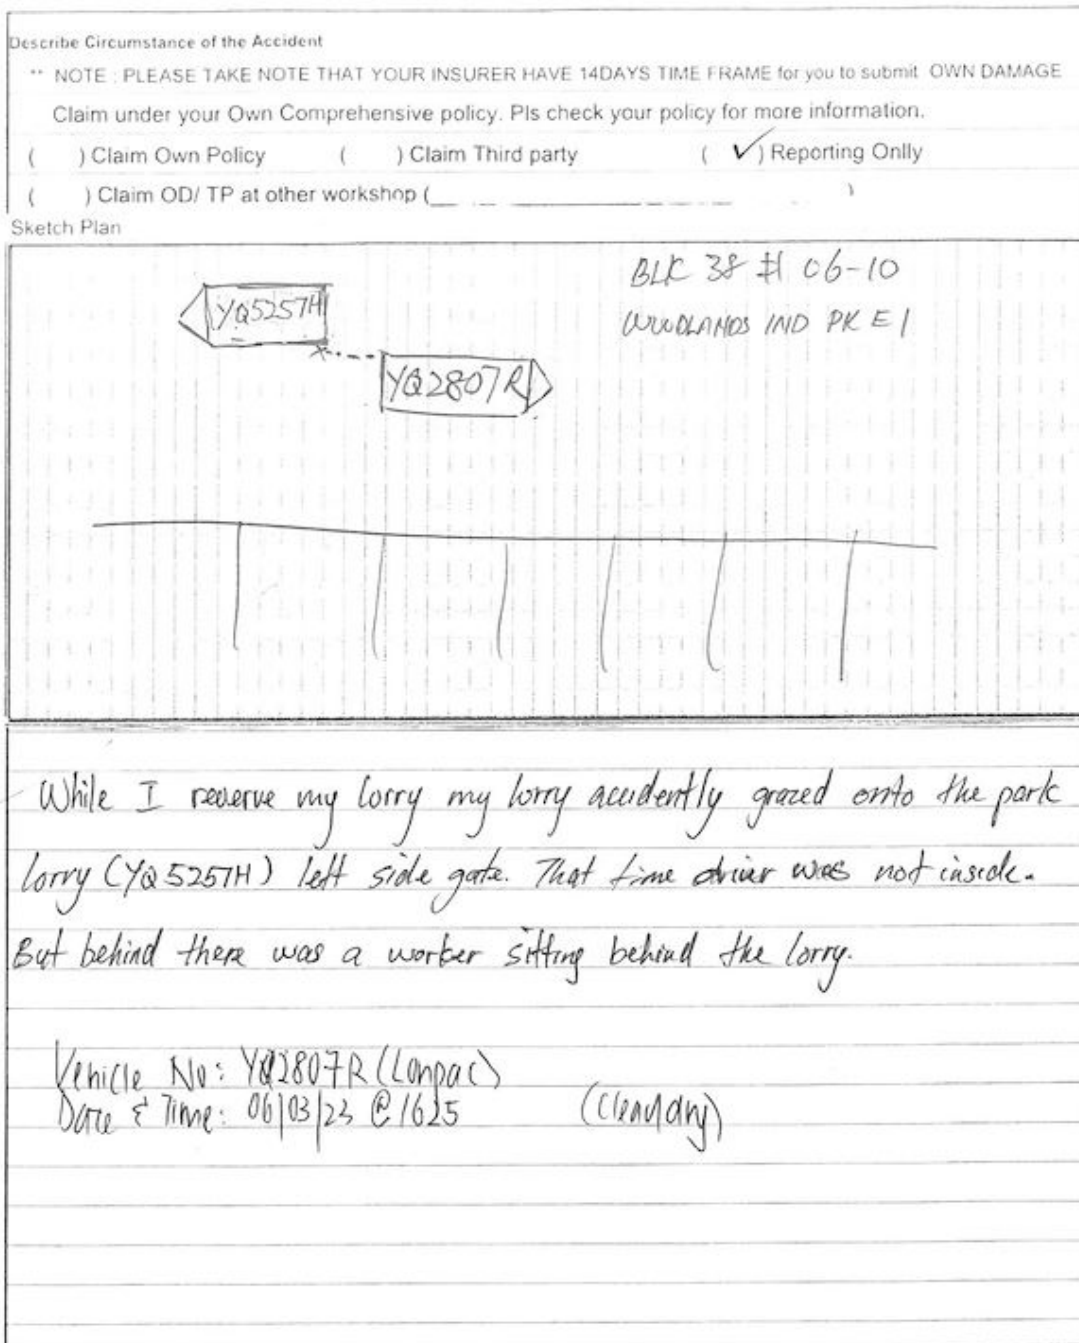 Describe Circumstance of the Accident
** NOTE : PLEASE TAKE NOTE THAT YOUR INSURER HAVE 14DAYS TIME FRAME for you to submit OWN DAMAGE
Claim under your Own Comprehensive policy. Pls check your policy for more information.
( ) Claim Own Policy ( ) Claim Third party ( ✓) Reporting Onlly
( ) Claim OD/ TP at other workshop (____________)
Sketch Plan
BLK 38 # 06-10
WOODLANDS IND PK E1
YQ5257H
YQ2807R
While I reverve my lorry my lorry accidently grazed onto the park
lorry (YQ5257H) left side gate. That time driver was not inside.
But behind there was a worker sitting behind the lorry.
Vehicle No: YQ2807R (Lonpac)
Date & Time: 06/03/23 @ 1625 (Clear/dry)